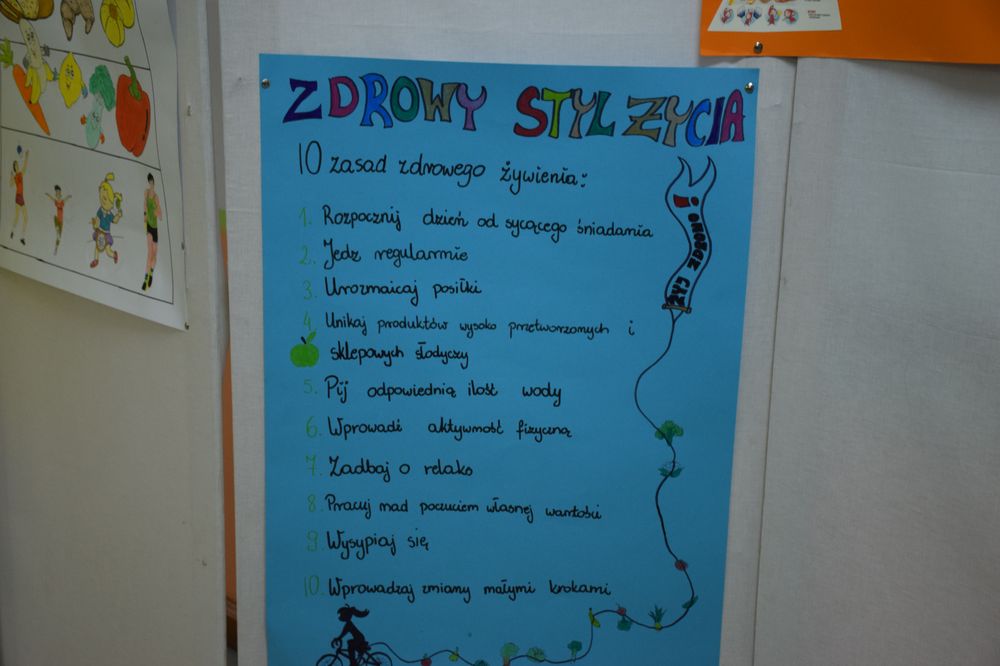 ZDROWY STYL ŻYCIA
10 zasad zdrowego żywienia:
1. Rozpocznij dzień od sycącego śniadania
2. Jedz regularnie
3. Urozmaicaj posiłki
4. Unikaj produktów wysoko przetworzonych i
sklepowych słodyczy
5. Pij odpowiednią ilość wody
6. Wprowadź aktywność fizyczną
7. Zadbaj o relaks
8. Pracuj nad poczuciem własnej wartości
9. Wysypiaj się
10. Wprowadzaj zmiany małymi krokami
ŻYJ ZDROWO!